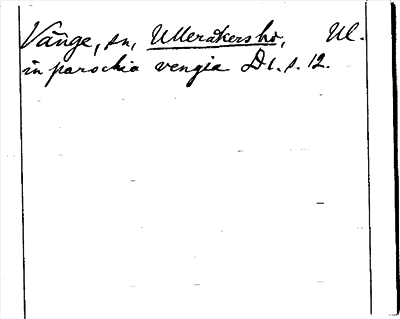 Vänge, sn, Ulleråkers hd, Ul.
in parochia vengia D 1. s. 12.